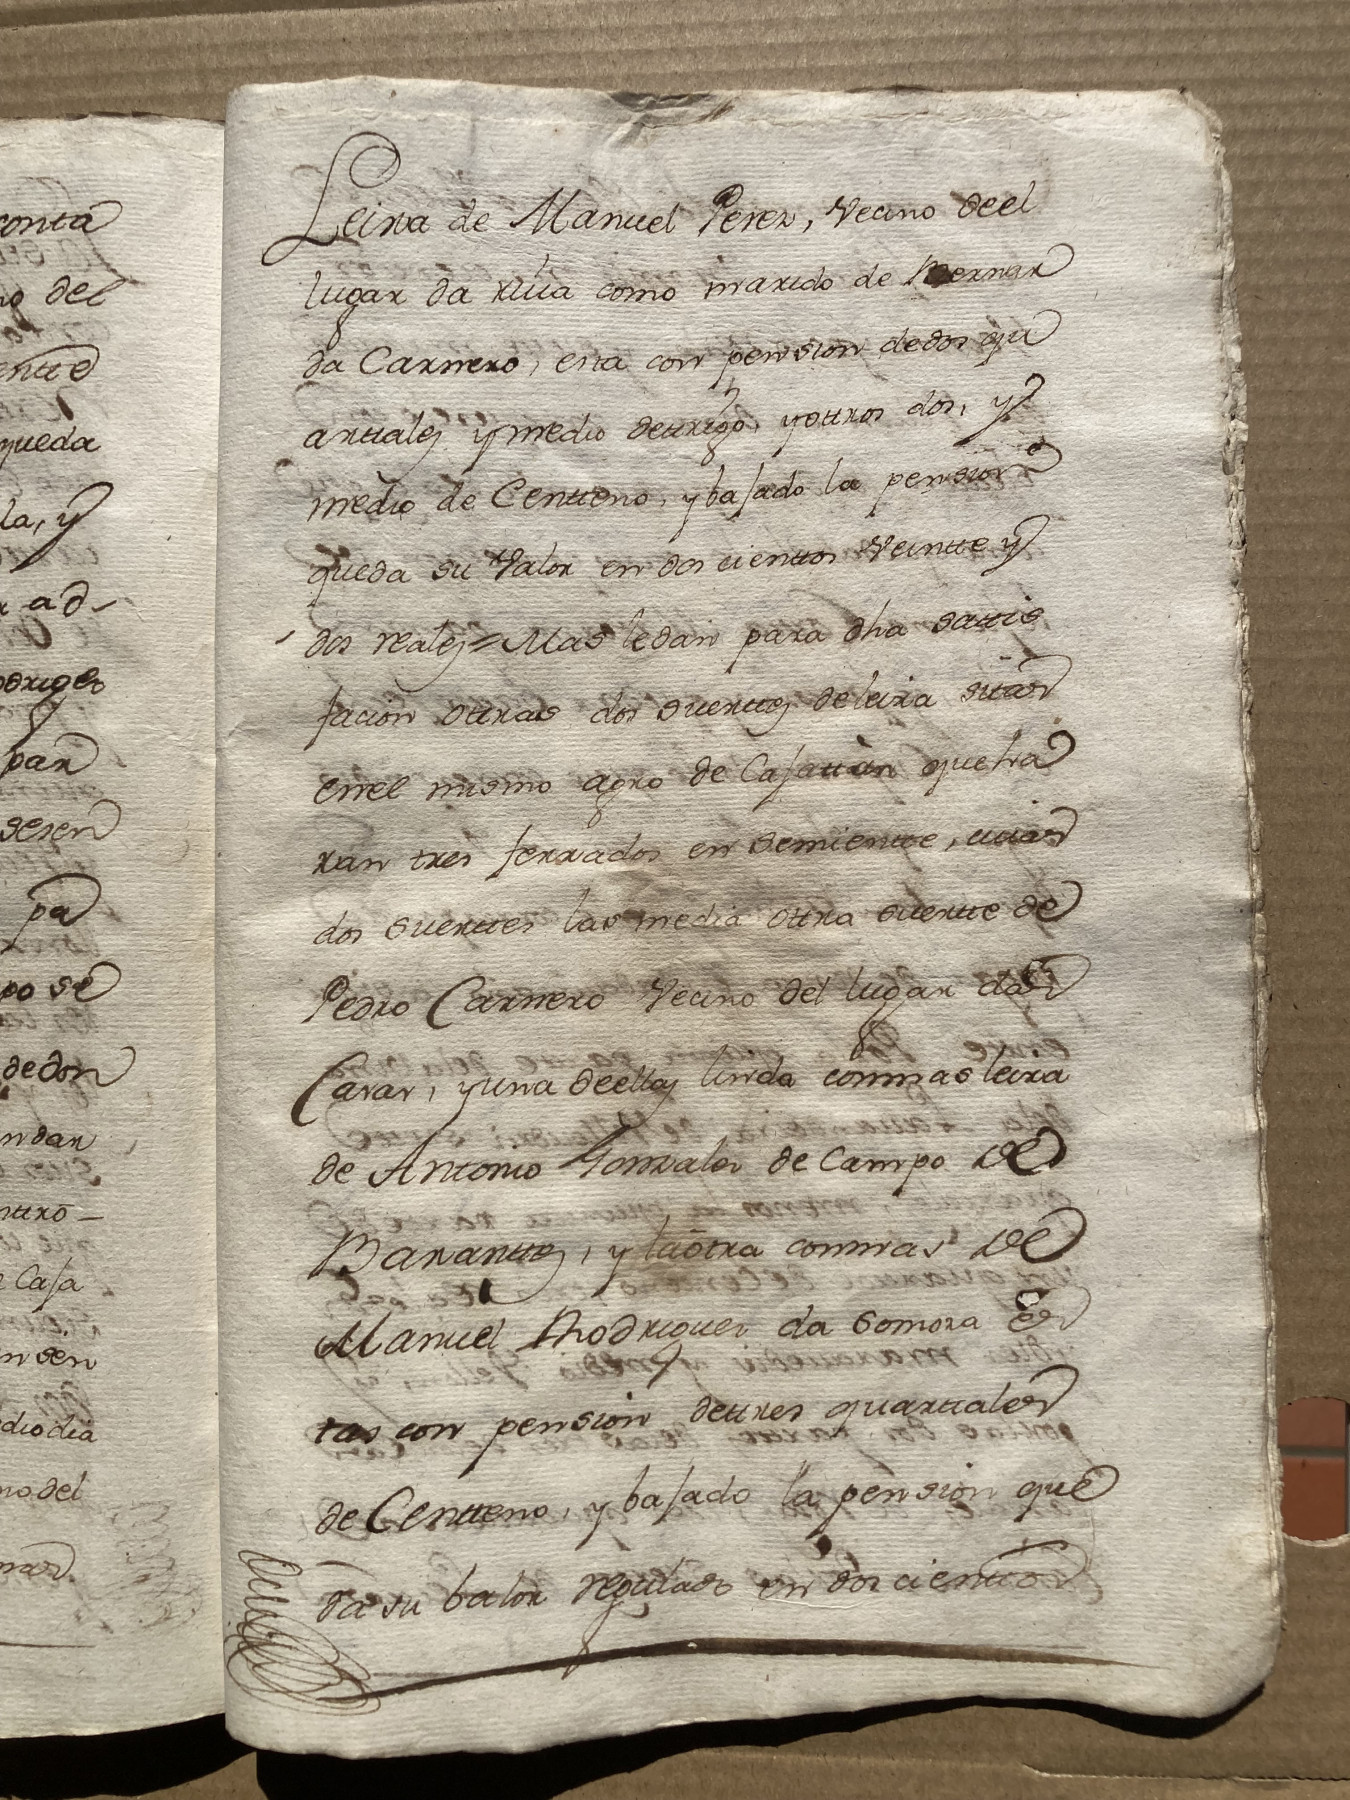 conta
no del
ente
queda
la, y
r ad-
odriges
par
seren
pa
po se
dedon
ndar
ntro-
e Casa
n sen
diodia
no del
nas
Leira de Manuel Perez, Vecino deel
lugar da rua como marido de Bernar
da Carnero, esta con pension dedos qu
arttales y medio dettrigo, yottros dos, y
medio de Centteno, y bajado la pension
queda su Valor en dos cienttos Veintte y
dos reales = Mas ledan para dha sattis
facion ottras dos suerttes deleira sitas
en el mismo agro de Casattan que lva
ran tres ferrados en semientte, cuias
dos suerttes las media ottra suertte de
Pedro Carnero Vecino del lugar das
Cavar, yuna deellas linda conmas leira
de Antonio Gonzales de Campo de
Baranttes, y laotra conmas de
Manuel Rodrigues da Somoza es
tas con pension dettres quarttales
de Centteno, y bajado la pension que
da su balor regulado en dos cienttos